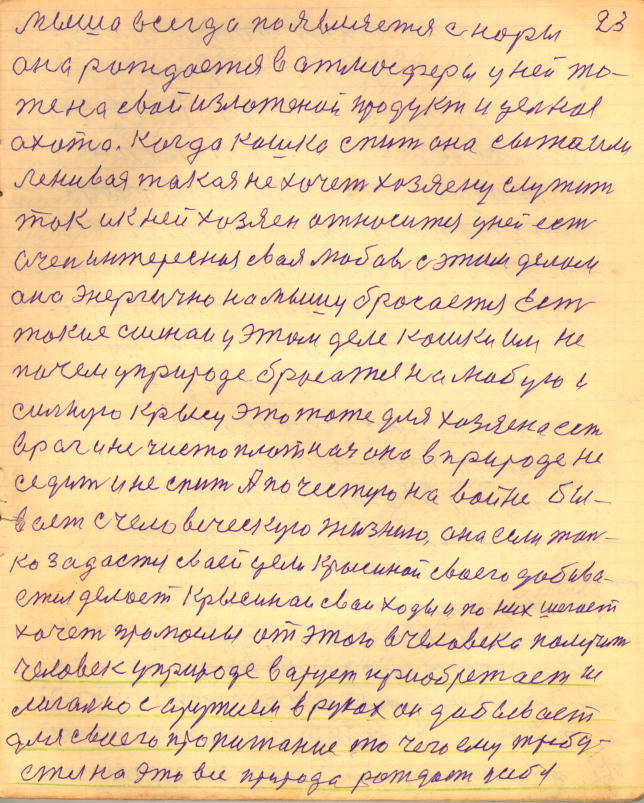 23
мыша всегда появляется с норы
она рождается в атмосферы у ней то-
же на свой изложеной продукт и целная
охота. Когда кошка спит она сытаили
ленивая такая не хочет хозяену служит
так и к ней хозяен относится у ней ест
очен интересная своя любовь с этим делом
она энергично на мышу бросается Ест
такие силнаи у этом деле кошки им не
почем у природе бросатся на любую и
силную Крысу это тоже для хозяена ест
враг и не чистоплотная она в природе не
седит и не спит А почестую на войне бы-
вает с человеческую жизнию, она если тол-
ко задастся своей цели Крысиной своего добива-
ется делает Крысинаи сваи ходы и по них шегает
хочет промыслы от этого в человека получит
человек у природе варует приобретает не
легално с аружием в руках он добывает
для своего пропитание то чего ему требу-
ется на это все природа рождает себя